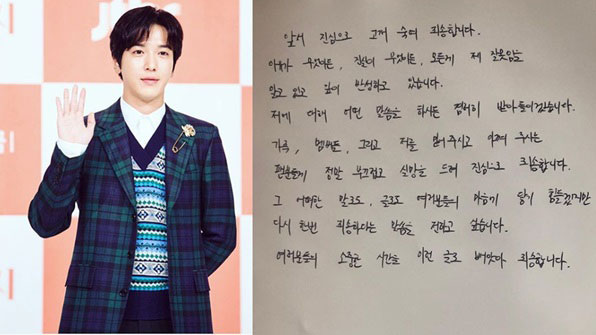 앞서 진심으로 고개 숙여 죄송합니다.
이유가 무엇이든, 진실이 무엇이든, 모든게 제 잘못임을
알고 있고 깊이 반성하고 있습니다.
저에 대해 어떤 말씀을 하시든 겸허히 받아들이겠습니다.
가족, 멤버들, 그리고 저를 믿어주시고 아껴주시는
팬분들께 정말 부끄럽고 실망을 드려 진심으로 죄송합니다.
그 어떠한 말로도, 글로도 여러분들의 마음에 닿기 힘들겠지만
다시 한번 죄송하다는 말씀을 전하고 싶습니다.
여러분들의 소중한 시간을 이런 글로 뺏었다 죄송합니다.